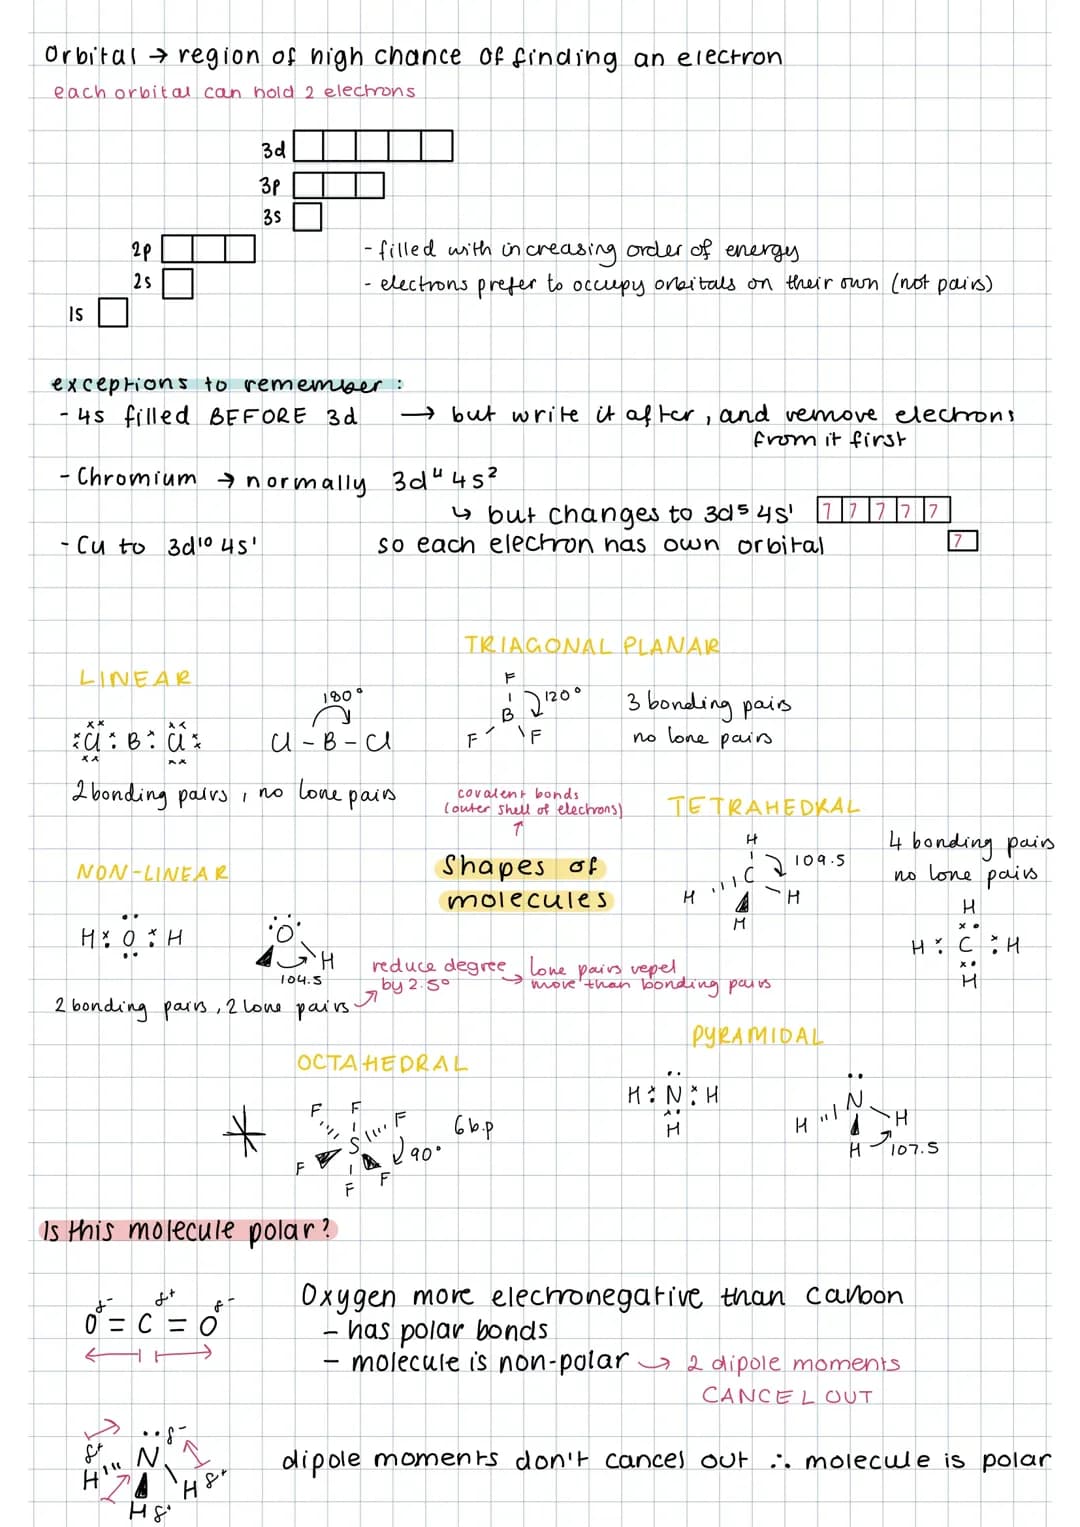 Orbital → region of high chance of finding an electron
each orbital can hold 2 electrons
3d
3p
3s
2p
2s
1s
- filled with increasing order of energy
- electrons prefer to occupy orbitals on their own (not pairs)
exceptions to remember :
- 4s filled BEFORE 3d → but write it after, and remove electrons
from it first
- Chromium → normally 3d⁴ 4s²
↳ but changes to 3d⁵ 4s¹
so each electron has own orbital
- Cu to 3d¹⁰ 4s¹
LINEAR
Cl : B : Cl
180°
Cl - B - Cl
2 bonding pairs, no lone pairs
TRIAGONAL PLANAR
F
B 120°
F F
3 bonding pairs
no lone pairs
covalent bonds
(outer shell of electrons)
↑
Shapes of
molecules
TETRAHEDRAL
H
C 109.5
H H
H
4 bonding pairs
no lone pairs
H
H : C : H
H
NON-LINEAR
H : O : H
O
H
104.5
2 bonding pairs, 2 lone pairs
reduce degree
by 2.5°
→ lone pairs repel
more than bonding pairs
OCTAHEDRAL
F F F
S
F F
F
90°
6 b.p
PYRAMIDAL
H : N : H
H
N
H H
H 107.5
Is this molecule polar?
δ- δ+ δ-
O = C = O
Oxygen more electronegative than carbon
- has polar bonds
- molecule is non-polar → 2 dipole moments
CANCEL OUT
δ-
δ+ N
H H δ+
H δ+
dipole moments don't cancel out ∴ molecule is polar